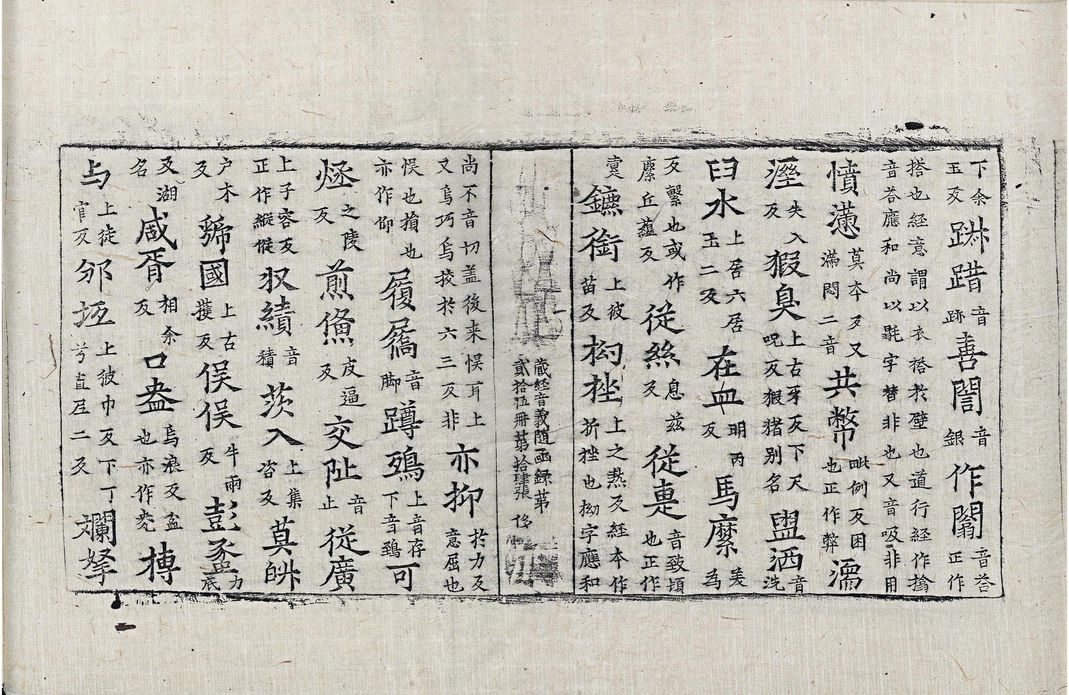 下余玉反踈踖音跡善誾音銀作闒音荅正作
搭也經意謂以衣搭於壁也道行經作搶音荅應和尚以毾字替非也又音吸非用
憤懣莫本反又滿悶二音共幣毗例反困也正作弊濡
溼失入反猳臭上古牙反下尺呪反猳猪别名盥洒音洗
臼水上居六居玉二反在血明丙反馬縻美為
反繫也或作縻丘蘊反從絲息兹反從叀音致頓也正作
疐鑣銜上彼苗反挫上之熱反經本作折挫也字應和
藏經音義隨函録第貳拾伍冊第拾肆張 侈
尚不音切盖後来悮耳上又烏巧烏挍於六三反非亦抑於力反意屈也
悮也損也亦作仰履屩音脚蹲鵄上音存下音鵄可
烝之陵反煎皮逼反交阯音止從廣
上子容反正作縱收績音積茨入上集咨反莫衇
户木反號國上古擭反俁俁牛雨反彭盠力底
反湖名咸胥相余反口盎烏浪反盆也亦作摶
与上徒官反邠上彼巾反下丁兮直尼二反斕拏